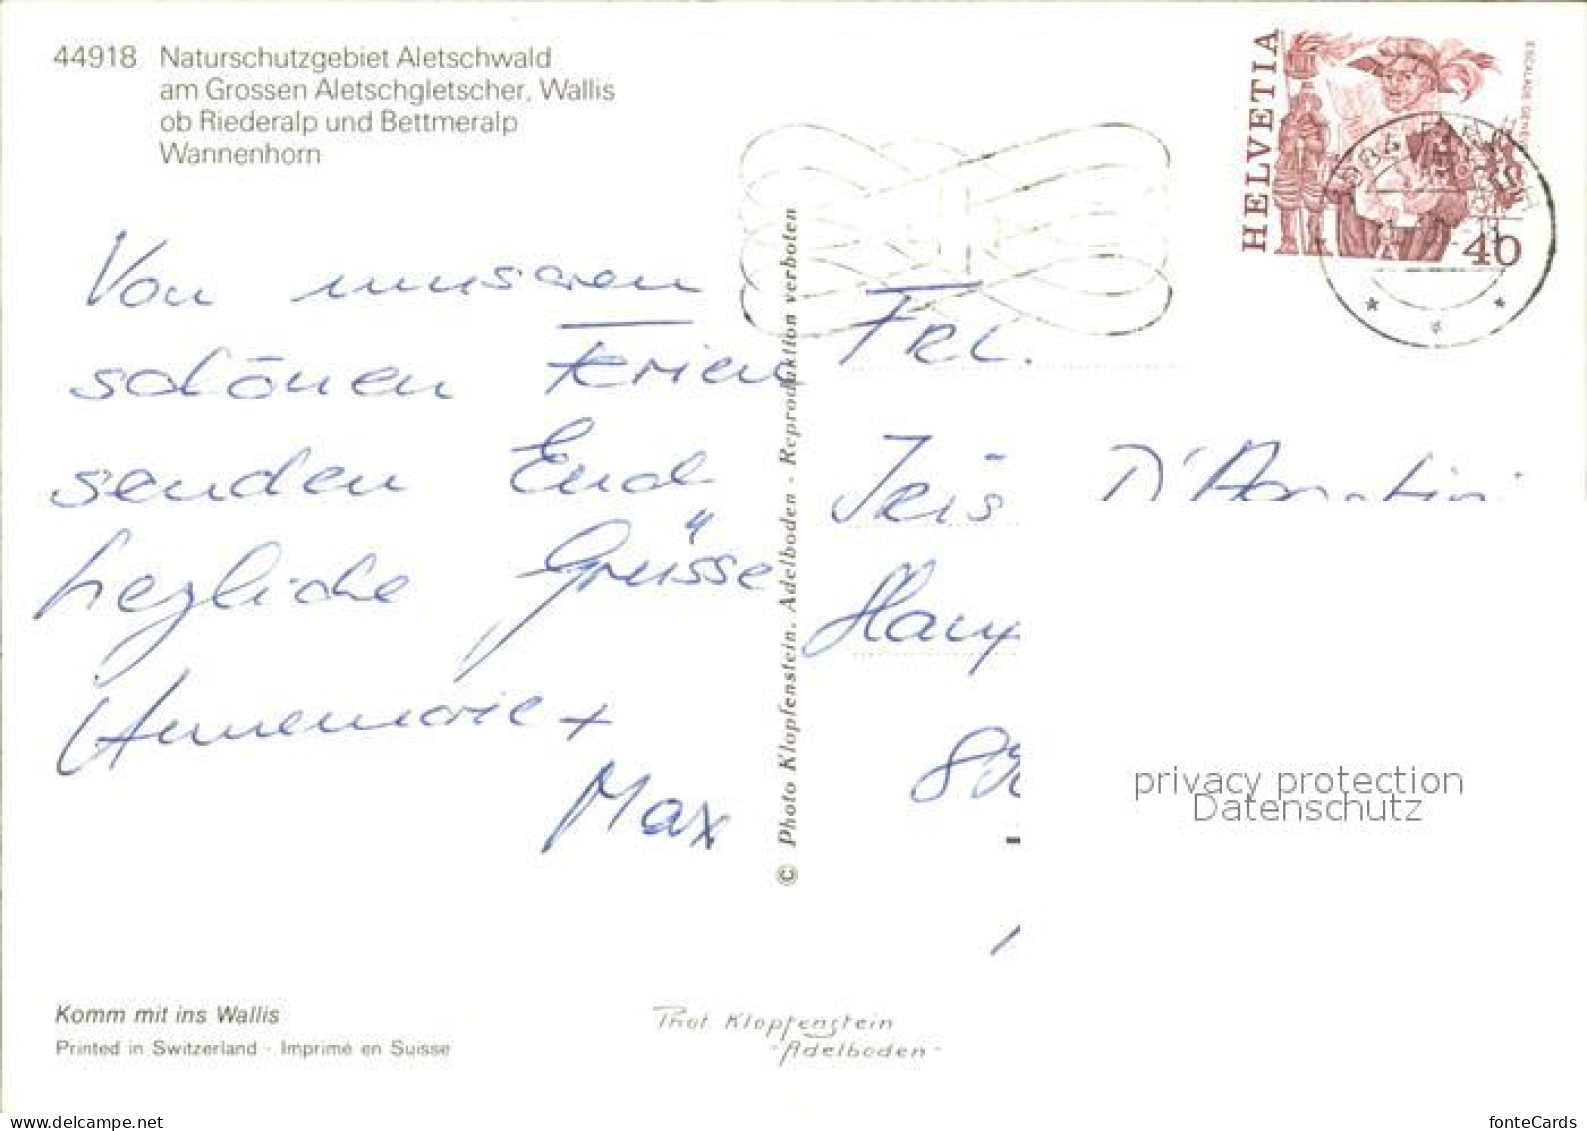 44918 Naturschutzgebiet Aletschwald
am Grossen Aletschgletscher, Wallis
ob Riederalp und Bettmeralp
Wannenhorn
HELVETIA
ESCALADE GENÈVE
40
Von unseren
schönen Ferien
senden Euch
herzliche Grüsse
Annemarie +
Max
© Photo Klopfenstein, Adelboden - Reproduktion verboten
Frl.
Iris
privacy protection
Datenschutz
Komm mit ins Wallis
Printed in Switzerland - Imprimé en Suisse
Phot. Klopfenstein
- Adelboden -
www.delcampe.net
fonteCards